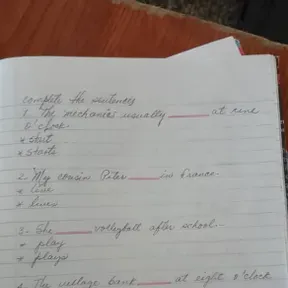 complete the sentences
1. The mechanics usually ______ at nine
o'clock
* start
* starts
2. My cousin Peter ______ in France.
* live
* lives
3. She ______ volleyball after school.
* play
* plays
4. The village bank ______ at eight o'clock